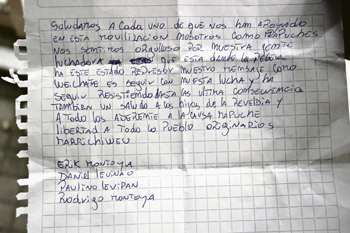 Saludamos A cada uno de que nos han Apoyado
en esta movilización nosotros como mapuches
nos sentimos orgulloso por nuestra gente
luchadora que esta dando la pelea
ha este estado represor nuestro mensaje como
weichafe es seguir con nuestra lucha y ha
seguir resistiendo hasta las ultima consecuencia
también un saludo a los hijos de la reveldia y
A todo los Aderente A la causa mapuche
libertad A todo lo pueblo originarios
marrichiweu
Erik Montoya
Daniel Levinao
Paulino Levipan
Rodrigo Montoya